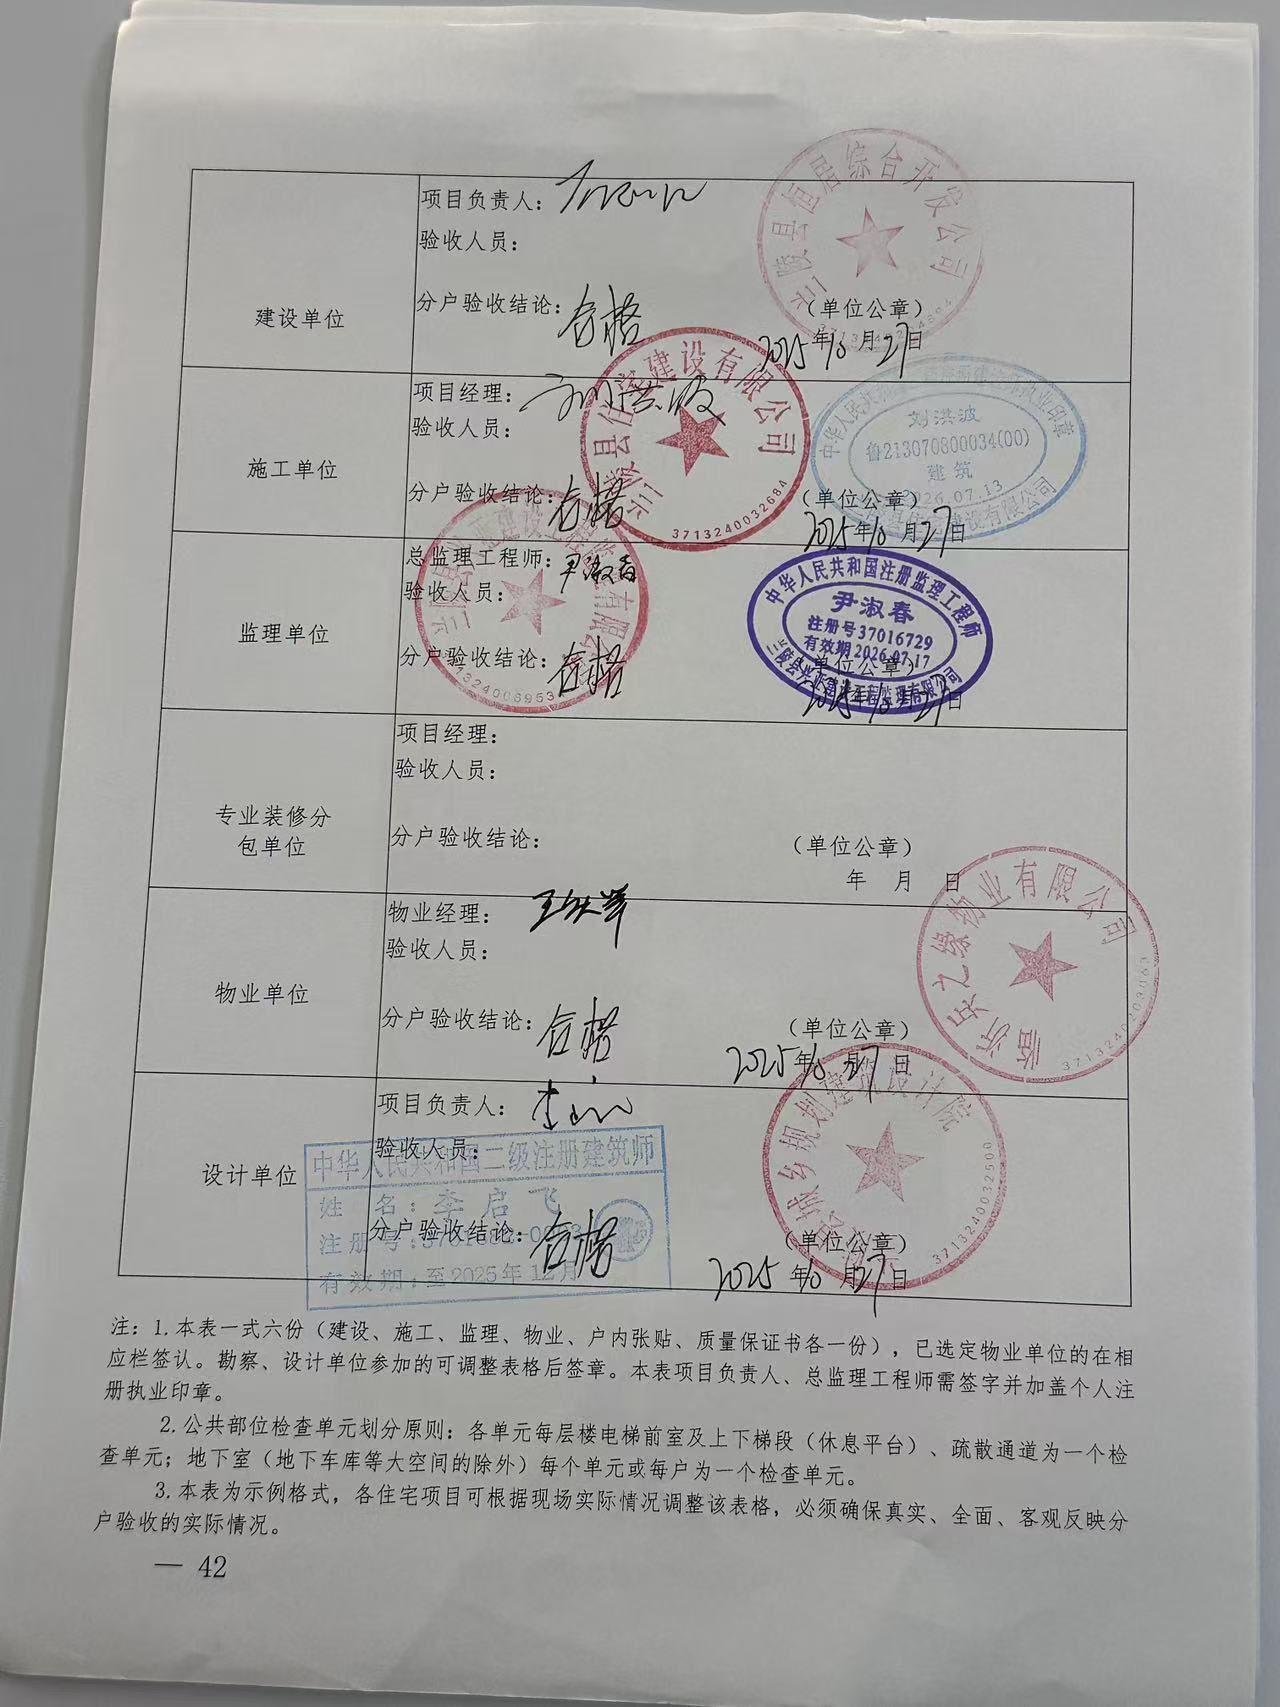 建设单位
项目负责人：
验收人员：
分户验收结论：合格
（单位公章）
2025年10月27日
县恒居综合开发公司
施工单位
项目经理：刘洪波
验收人员：
分户验收结论：合格
（单位公章）
2025年10月27日
建设有限公司
3713240032684
刘洪波
鲁213070800034(00)
建筑
2026.07.13
监理单位
总监理工程师：尹淑春
验收人员：
分户验收结论：合格
（单位公章）
2025年10月27日
中华人民共和国注册监理工程师
尹淑春
注册号37016729
有效期2026.07.17
专业装修分
包单位
项目经理：
验收人员：
分户验收结论：
（单位公章）
年 月 日
物业单位
物业经理：
验收人员：
分户验收结论：合格
（单位公章）
2025年10月27日
临沂吴之缘物业有限公司
设计单位
项目负责人：
验收人员：
分户验收结论：合格
（单位公章）
2025年10月27日
城乡规划建筑设计院
3713240032500
中华人民共和国二级注册建筑师
姓 名：李启飞
注册号：
有效期：至2025年12月
注：1.本表一式六份（建设、施工、监理、物业、户内张贴、质量保证书各一份），已选定物业单位的在相
应栏签认。勘察、设计单位参加的可调整表格后签章。本表项目负责人、总监理工程师需签字并加盖个人注
册执业印章。
2.公共部位检查单元划分原则：各单元每层楼电梯前室及上下梯段（休息平台）、疏散通道为一个检
查单元；地下室（地下车库等大空间的除外）每个单元或每户为一个检查单元。
3.本表为示例格式，各住宅项目可根据现场实际情况调整该表格，必须确保真实、全面、客观反映分
户验收的实际情况。
— 42